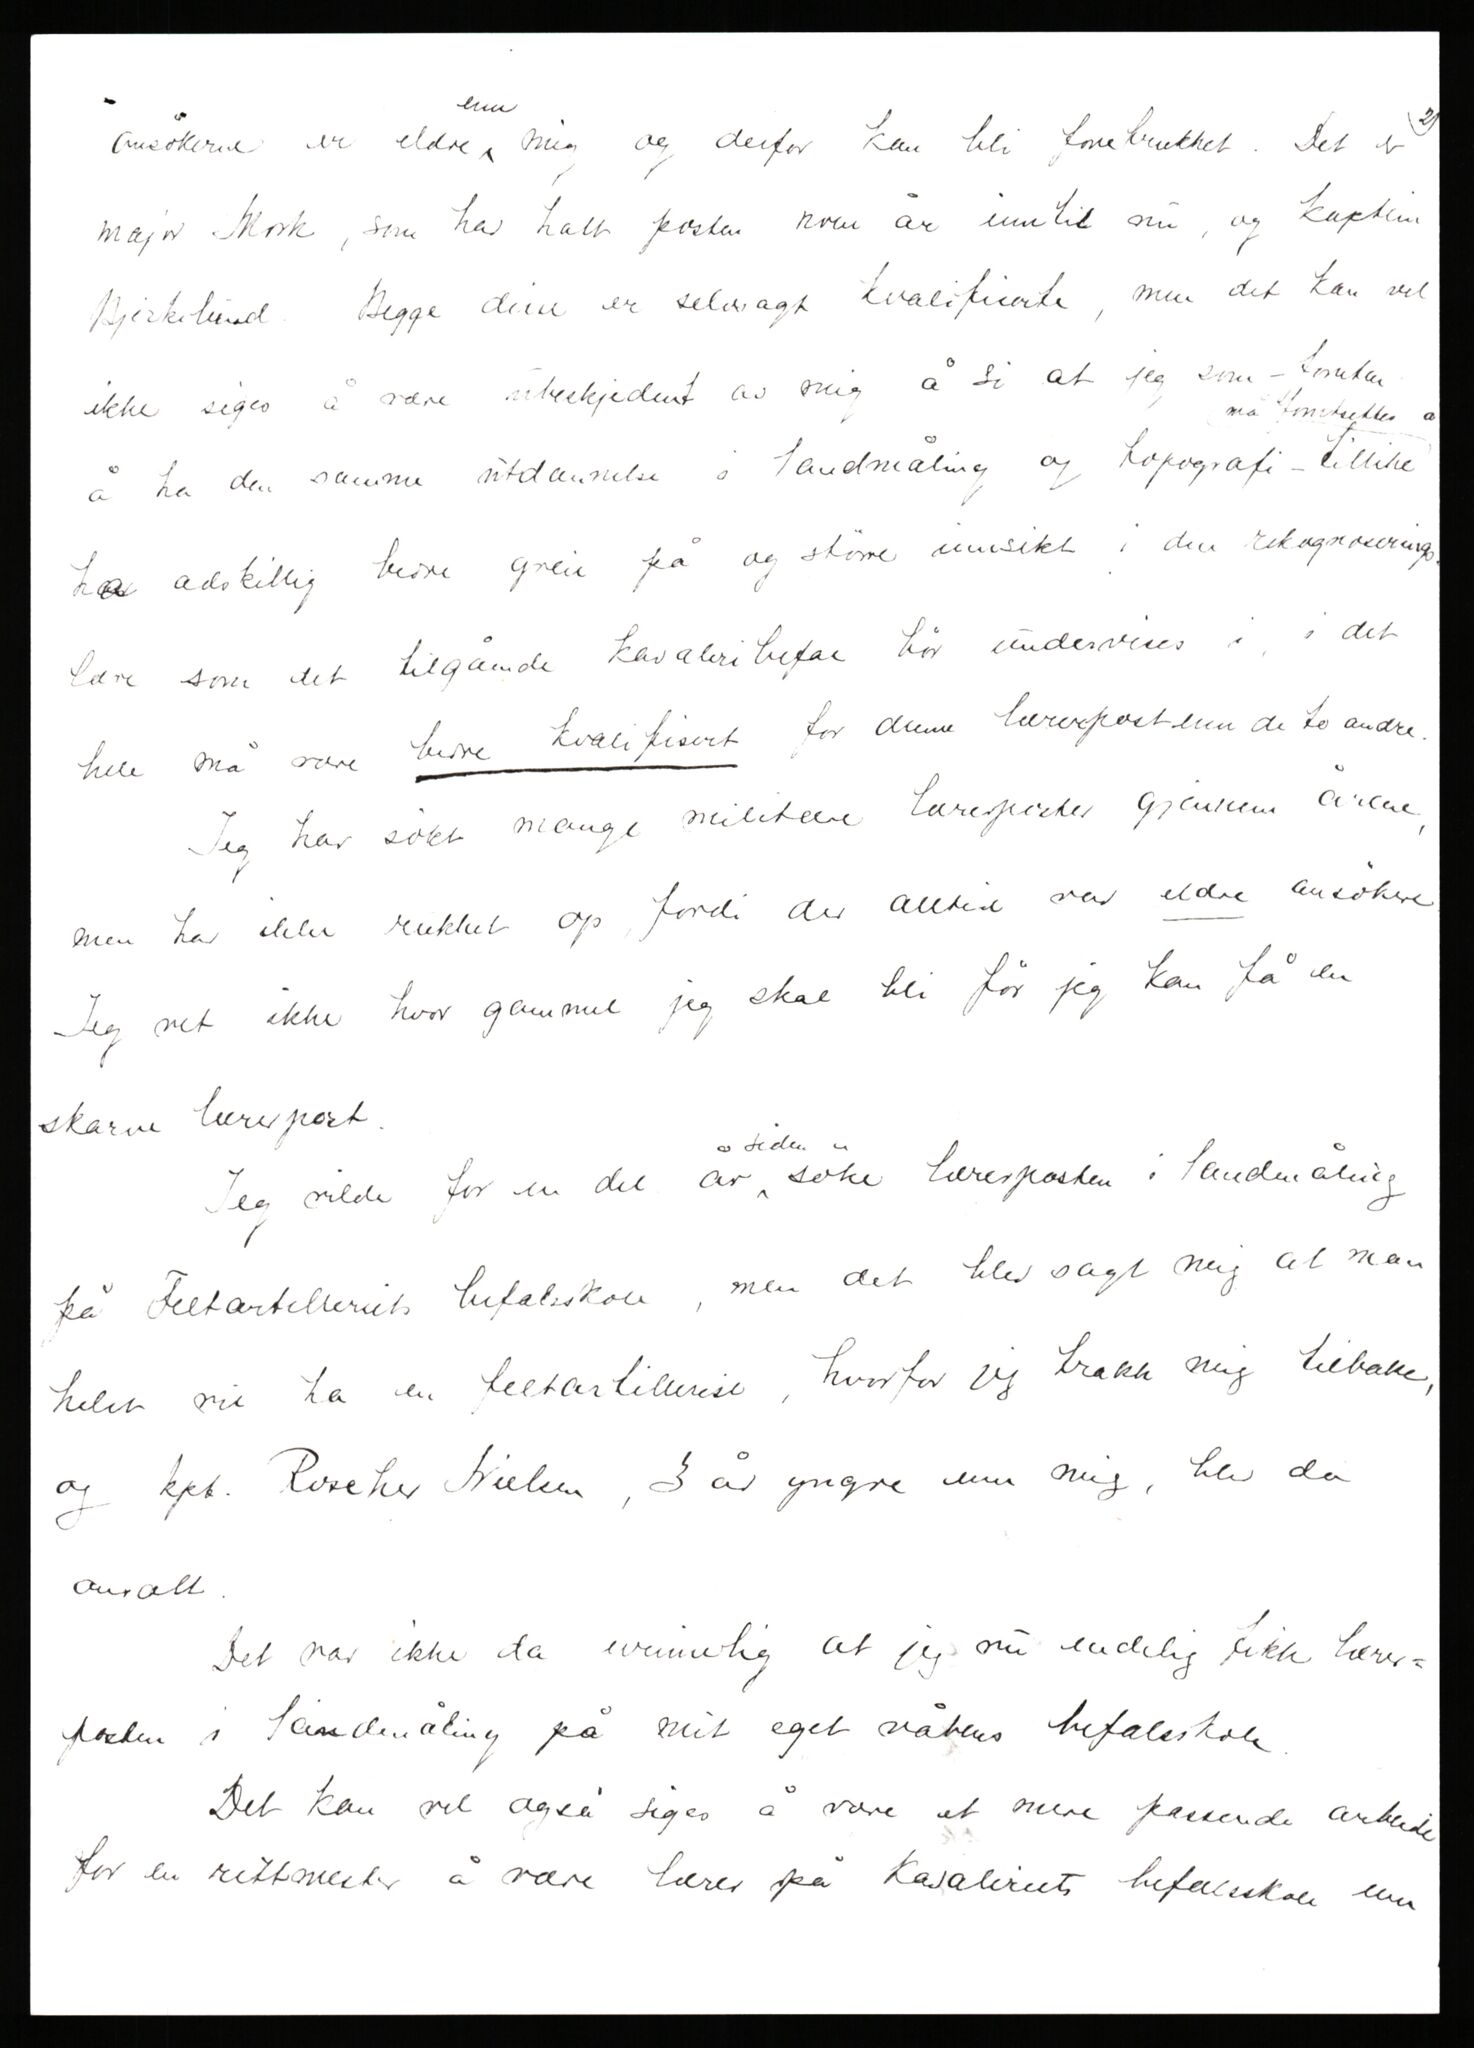 2)
ansökerne er eldre enn mig og derfor kan bli foretrukket. Det er
major Mork, som har hatt posten noen år inntil nu, og kaptein
Bjerkelund. Begge disse er selvsagt kvalifiserte, men det kan vel
ikke siges å være ubeskjedent av mig å si at jeg som - foruten
å ha den samme utdannelse i landmåling og topografi - tillike må forutsettes å
ha adskillig bedre greie på og större innsikt i den rekognoserings-
lære som det tilgående kavaleribefal bör undervises i, i det
hele må være bedre kvalifisert for denne lærerpost enn de to andre.
Jeg har sökt mange militære lærerposter gjennem årene,
men har ikke rukket op, fordi der alltid var eldre ansökere.
Jeg vet ikke hvor gammel jeg skal bli för jeg kan få en
skarve lærerpost.
Jeg vilde for en del år siden söke lærerposten i landmåling
på Feltartilleriets befalsskole, men det blev sagt mig at man
helst vil ha en feltartillerist, hvorfor jeg trakk mig tilbake,
og kpt. Roscher Nielsen, 3 år yngre enn mig, blev da
ansatt.
Det var ikke da urimelig at jeg nu endelig fikk lærer=
posten i landmåling på mit eget våbens befalsskole.
Det kan vel også siges å være et mere passende arbeide
for en rittmester å være lærer på Kavaleriets befalsskole enn